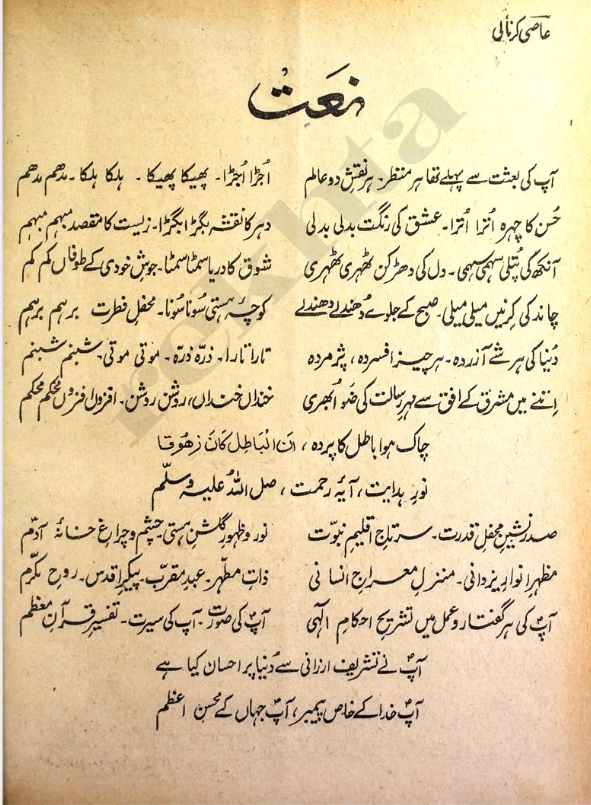 عاصی کرنالی
نعت
آپ کی بعثت سے پہلے تھا ہر منظر۔ ہر نقش دو عالم اُجڑا اُجڑا۔ پھیکا پھیکا۔ ہلکا ہلکا۔ مدھم مدھم
حُسن کا چہرہ اُترا اُترا۔ عشق کی رنگت بدلی بدلی دہر کا نقشہ بگڑا بگڑا۔ زیست کا مقصد مبہم مبہم
آنکھ کی پُتلی سہمی سہمی۔ دل کی دھڑکن ٹھہری ٹھہری شوق کا دریا سمٹا سمٹا۔ جوشِ خودی کے طوفاں کم کم
چاند کی کرنیں میلی میلی۔ صبح کے جلوے دُھندلے دھندلے کوچۂ ہستی سُونا سُونا۔ محفلِ فطرت برہم برہم
دُنیا کی ہر شے آزردہ۔ ہر چیز افسردہ، پژمردہ تارا تارا۔ ذرّہ ذرّہ۔ موتی موتی۔ شبنم شبنم
اِتنے میں مشرق کے افق سے مہرِ رسالت کی ضَو اُبھری خنداں خنداں، روشن روشن۔ افزوں افزوں محکم محکم
چاک ہوا باطل کا پردہ، ان الباطل کان زھوقا
نورِ ہدایت، آیۂ رحمت، صل اللہُ علیہ وسلّم
صدر نشینِ محفلِ قدرت۔ سرتاجِ اقلیمِ نبوّت نور و ظہورِ گلشنِ ہستی۔ چشم و چراغِ خانۂ آدم
مظہرِ انوارِ یزدانی۔ منزلِ معراجِ انسانی ذاتِ مطہّر۔ عبدِ مقرّب۔ پیکرِ اقدس۔ روحِ مکرّم
آپؐ کی ہر گفتار و عمل میں تشریحِ احکامِ الٰہی آپؐ کی صورت۔ آپ کی سیرت۔ تفسیرِ قرآنِ معظم
آپؐ نے تشریف ارزانی سے دُنیا پر احسان کیا ہے
آپؐ خدا کے خاص پیمبر، آپؐ جہاں کے محسنِ اعظم
rekhta